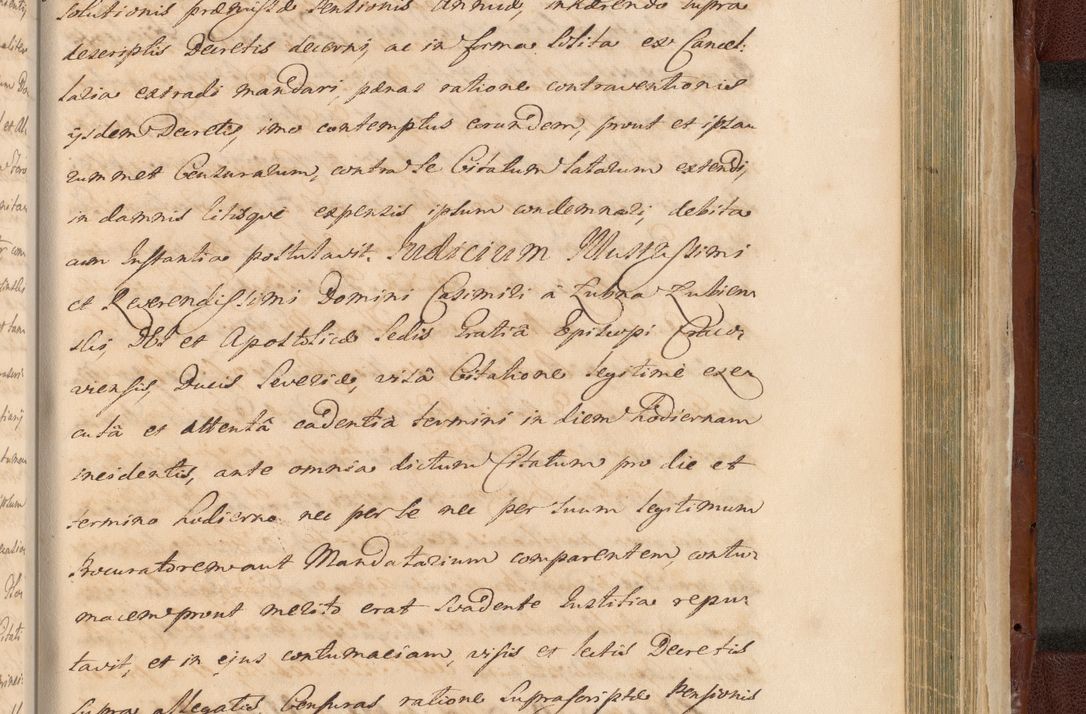 solutionis præmissæ Pensionis Annuæ, inhærendo supra
descriptis Decretis decerni, ac in forma solita ex Cancel:
laria extradi mandari, pænas ratione contraventionis
ijsdem Decretis, imo contemptus eorundem, prout et ipsa:
rummet Censurarum, contra se Citatum latarum extendi,
in damnis litisque expensis ipsum condemnari, debita
cum Instantia postulavit. Judicium Illustrissimi
et Reverendissimi Domini Casimiri à Lubna Lubien:
ski, Dei et Apostolicæ Sedis Gratiâ Episcopi Craco:
viensis, Ducis Severiæ, visâ Citatione legitimè exe:
cutâ et attentâ cadentiâ termini in diem hodiernam
incidentis, ante omnia dictum Citatum pro die et
termino hodierno nec per se nec per suum legitimum
Procuratorem aut Mandatarium comparentem, contu:
macem prout merito erat Svadente Iustitia repu:
tavit, et in ejus contumaciam, visis et lectis Decretis
supra allegatis, Censuras ratione suprascriptæ Pensionis